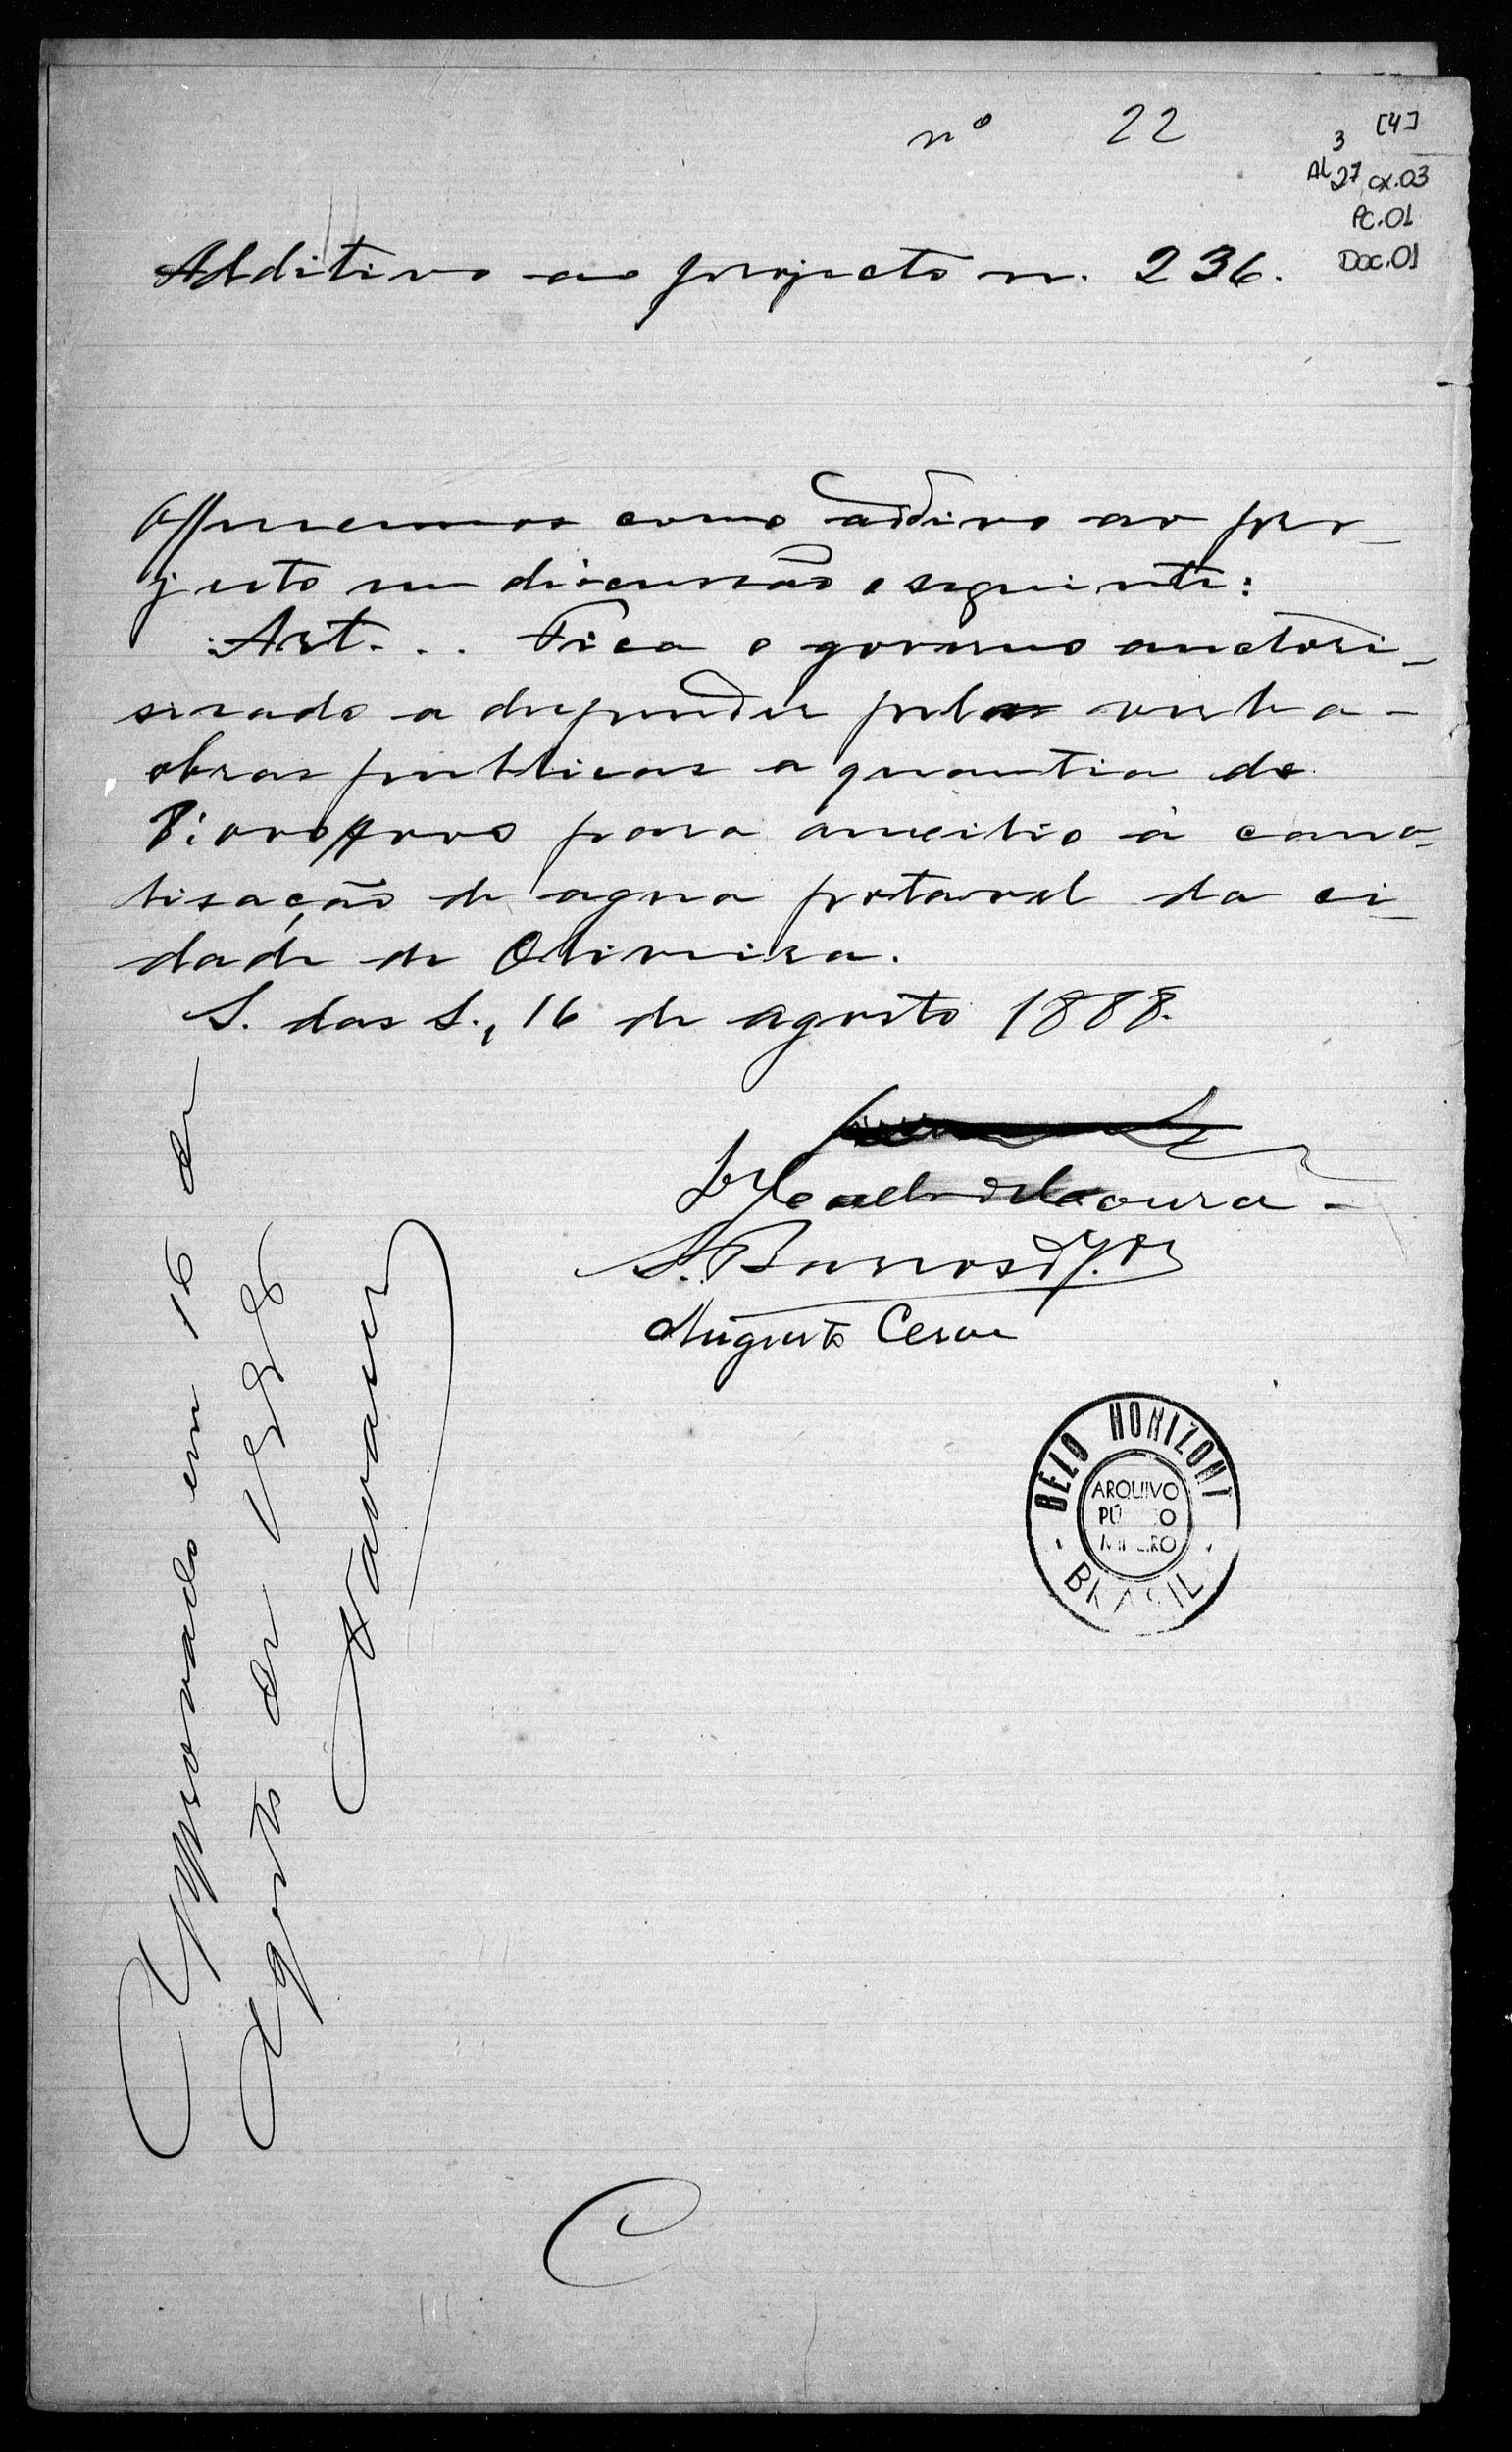 nº 22
3 [4]
AL 27 cx.03
PC.01
Doc.01
Additivo ao projecto n. 236.
Offerecemos como additivo ao pro-
jecto em discussão o seguinte:
Art. . . Fica o governo auctori-
sado a despender pela verba -
obras publicas a quantia de
para auxilio á cana-
lisação de agua potavel da ci-
dade de Oliveira.
S. das S., 16 de agosto 1888.
Moura -
S. Barros
Augusto Cesar
Approvado em 16 de
Agosto de 1888
Navarro
BELO HORIZONT
ARQUIVO
PÚ CO
MI RO
BRASIL